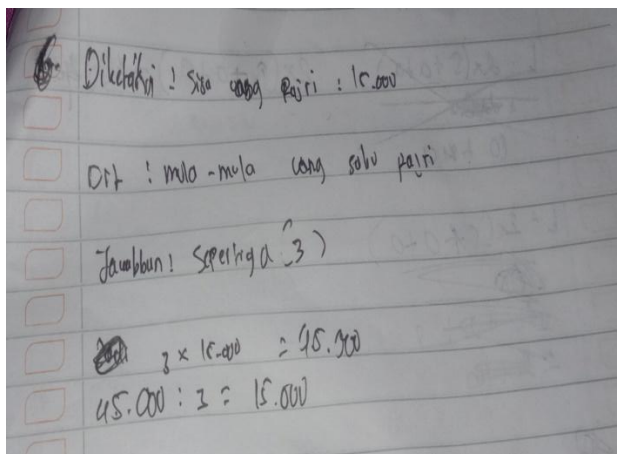 6. Diketahui : Sisa uang Pajri : 15.000
Dit : mula-mula uang saku pajri
Jawabban : Sepertiga (3)
3 x 15.000 = 45.000
45.000 : 3 = 15.000